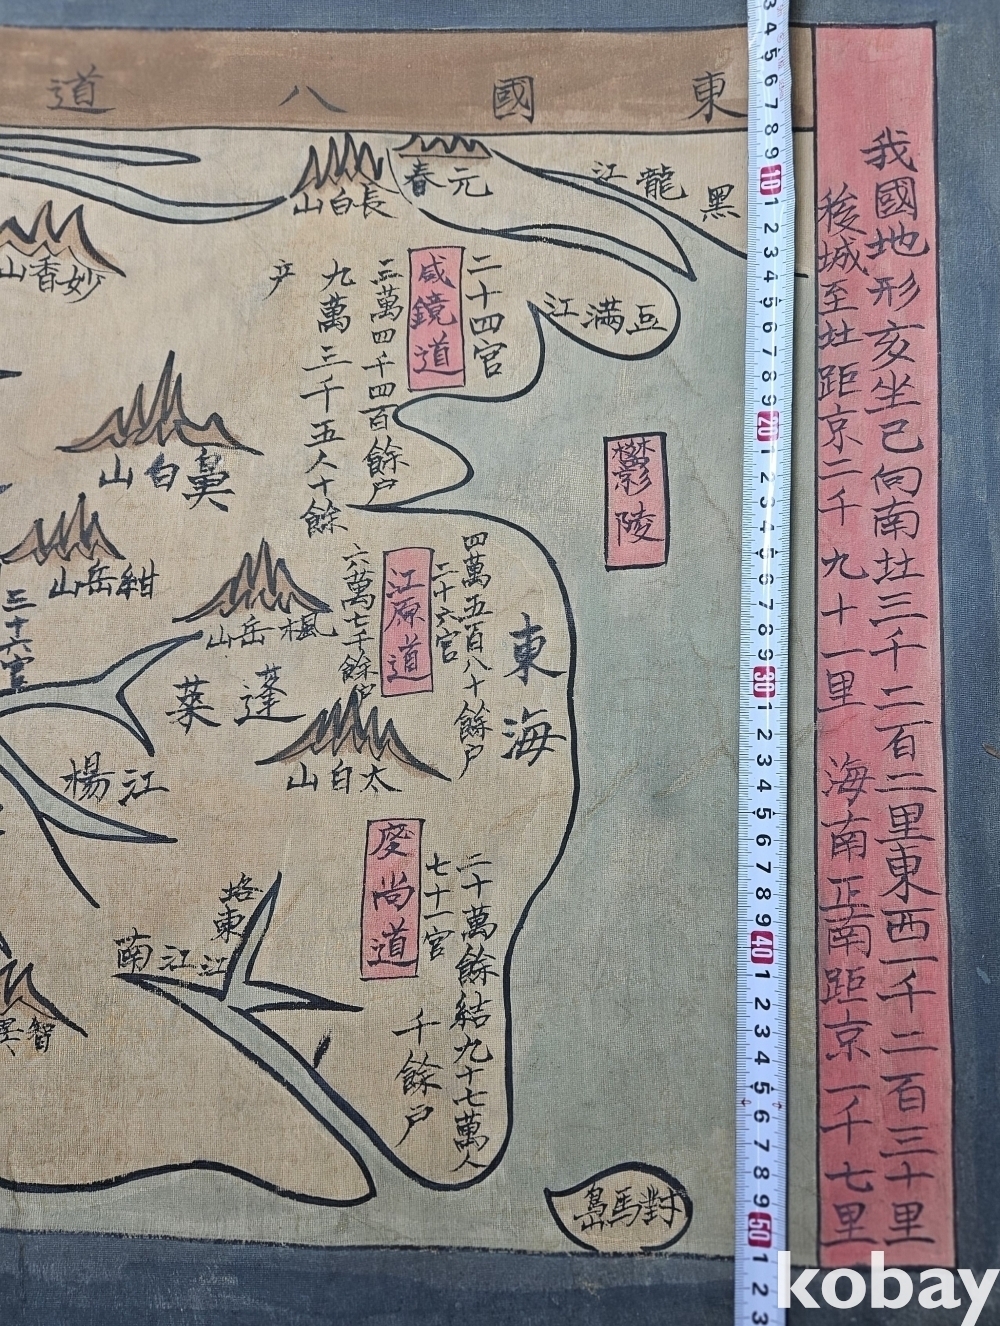 東國八道
我國地形亥坐巳向南北三千二百二里東西一千二百三十里
稳城至北距京二千九十一里 海南正南距京一千七里
黑龍江
元春
長白山
妙香山
豆滿江
二十四官
咸鏡道
三萬四千四百餘户
九萬三千五人十餘
户
鼻白山
紺岳山
欝陵
四萬五百八十餘户
二十六官
江原道
六萬七千餘户
楓岳山
三十六官
東海
蓬萊
太白山
江楊
慶尚道
二十萬餘結九十七萬人
七十一官
千餘户
洛東江
南江
智異
對馬島
3 4 5 6 7 8 9 10 1 2 3 4 5 6 7 8 9 20 1 2 3 4 5 6 7 8 9 30 1 2 3 4 5 6 7 8 9 40 1 2 3 4 5 6 7 8 9 50 1 2 3
kobay